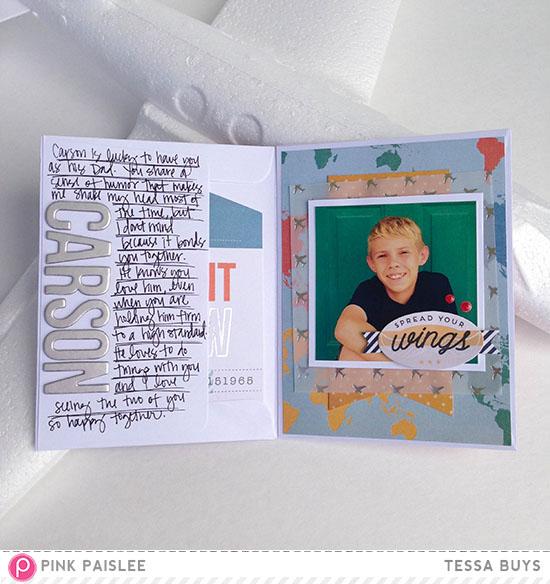 Carson is lucky to have you
as his Dad. You share a
sense of humor that makes
me shake my head most of
the time, but
I don't mind
because it bonds
you together.
He knows you
love him, even
when you are
holding him firm
to a high standard.
He loves to do
things with you
and I love
seeing the two of you
so happy together.
CARSON
IT
W
151965
SPREAD YOUR
wings
PINK PAISLEE
TESSA BUYS